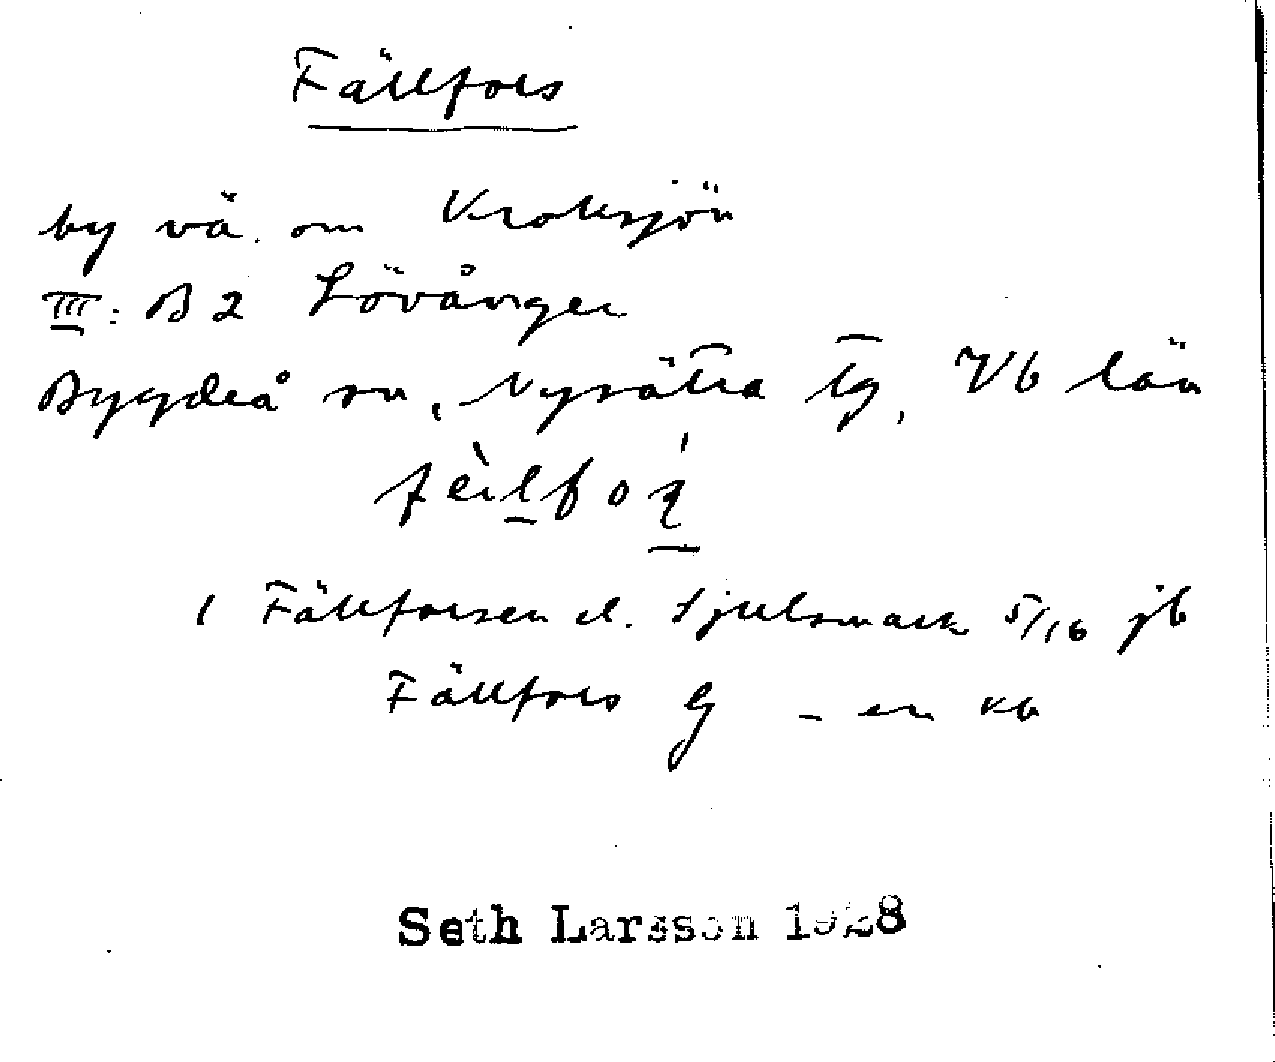 Fällfors
by vä. om Kroksjön
III: B2 Lövånger
Bygdeå sn, Nysätra tg, Vb län
1 Fällforsen el. Sjulsmark 5/16 jb
Fällfors G – en kb
Seth Larsson 1928